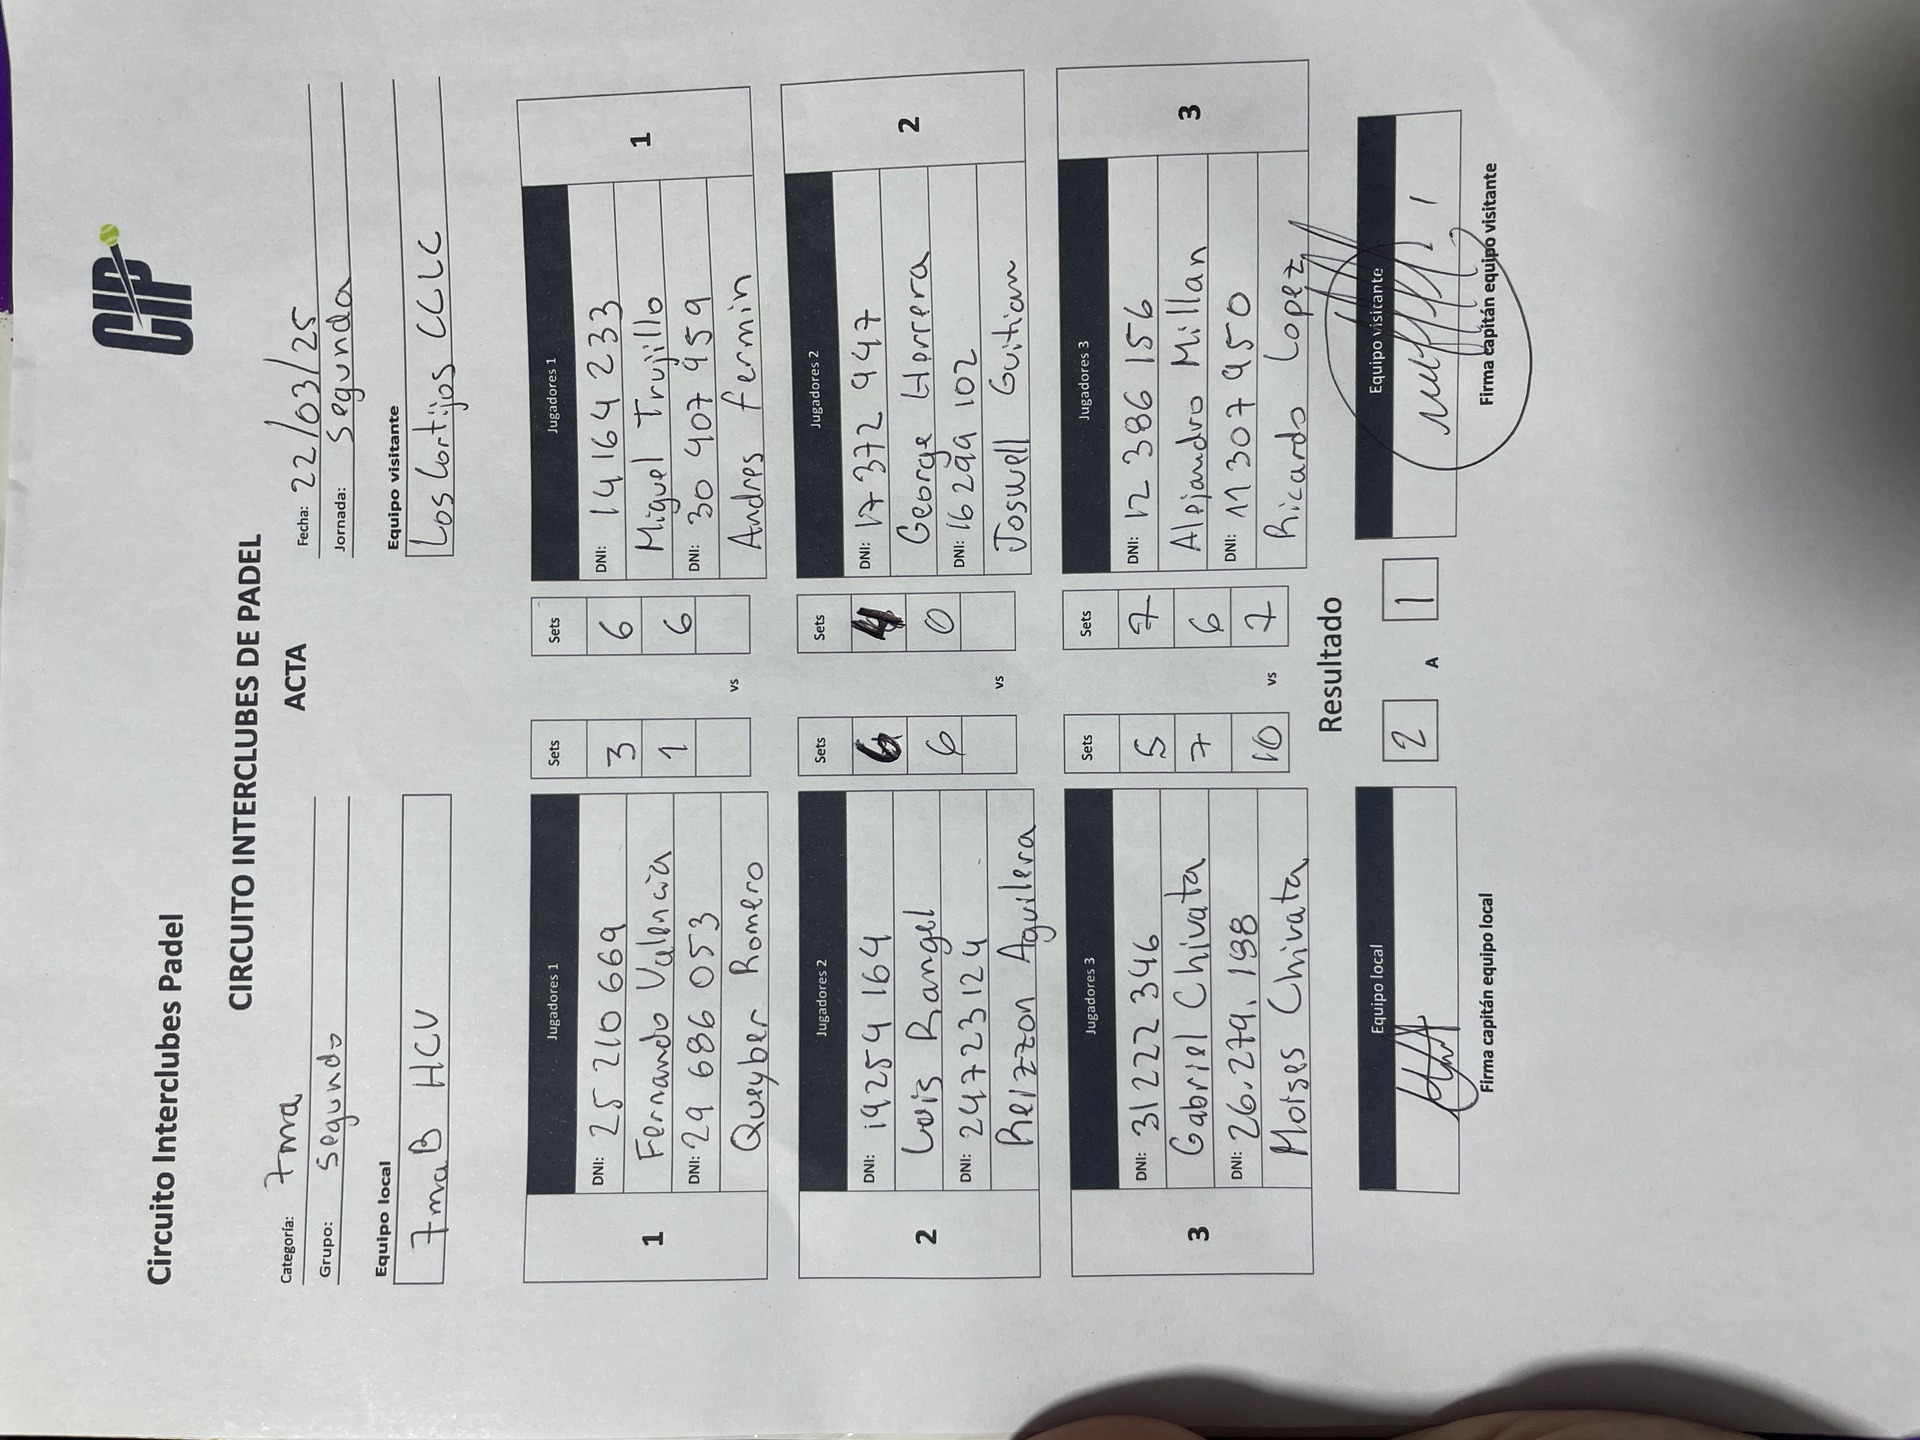 CIP
Circuito Interclubes Padel
CIRCUITO INTERCLUBES DE PADEL
ACTA
Categoría: 7ma
Fecha: 22/03/25
Grupo: Segundo
Jornada: Segunda
Equipo local
Equipo visitante
7ma B HCV
Los Cortijos CCLC
Jugadores 1 Sets Sets Jugadores 1
1
DNI: 25 210 669 3 6 DNI: 14 164 233
Fernando Valencia 1 6 Miguel Trujillo
DNI: 29 686 053 DNI: 30 407 959
Queyber Romero vs Andres Fermin
1
Jugadores 2 Sets Sets Jugadores 2
2
DNI: 19254 164 6 4 DNI: 17 372 947
Luis Rangel 6 0 George Herrera
DNI: 24723124 DNI: 16 299 102
Reizzon Aguilera vs Joswell Guitian
2
Jugadores 3 Sets Sets Jugadores 3
3
DNI: 31 222 346 5 7 DNI: 12 386 156
Gabriel Chivata 7 6 Alejandro Millan
DNI: 26.279.198 10 7 DNI: 11 307 950
Moises Chivata vs Ricardo Lopez
3
Resultado
Equipo local 2 A 1 Equipo visitante
Firma capitán equipo local
Firma capitán equipo visitante